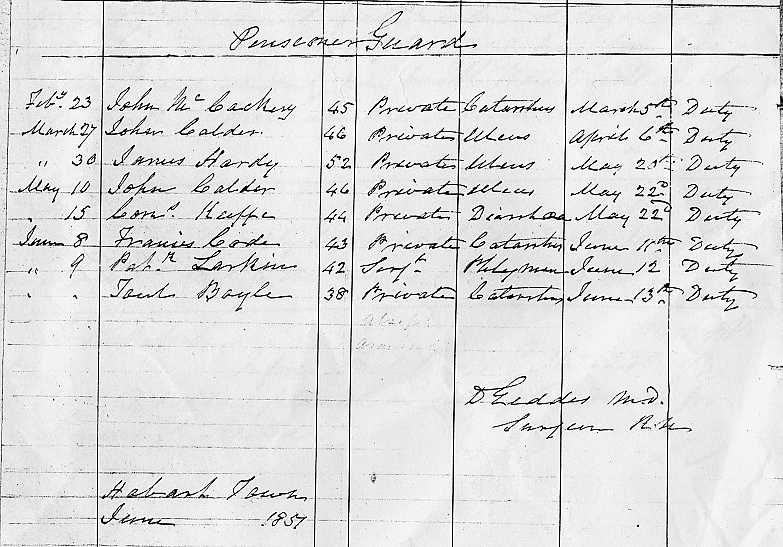 Pensioner Guard
Feby. 23 John McCackery 45 Private Catarrhus March 5th Duty
March 27 John Calder 46 Private Ulcus April 6th Duty
" 30 James Hardy 52 Private Ulcus May 20th Duty
May 10 John Calder 46 Private Ulcus May 22d Duty
" 15 Corns. Keeffe 44 Private Diarrhoea May 22d Duty
June 8 Francis Code 43 Private Catarrhus June 11th Duty
" 9 Patk. Larkin 42 Sergt. Phlegmon June 12 Duty
" " Boyle 38 Private Catarrhus June 13th Duty
D Geddes M.D.
Surgeon R.N
Hobart Town
June 1851